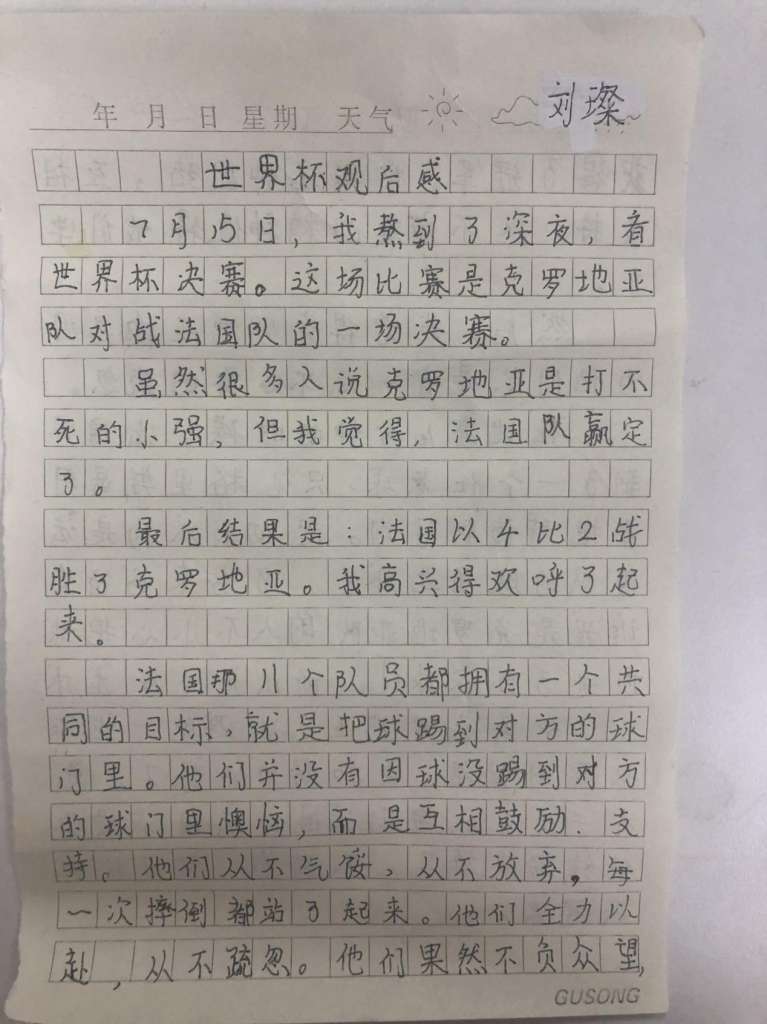 年 月 日 星期 天气
刘璨
世界杯观后感
7月15日，我熬到了深夜，看
世界杯决赛。这场比赛是克罗地亚
队对战法国队的一场决赛。
虽然很多人说克罗地亚是打不
死的小强，但我觉得，法国队赢定
了。
最后结果是：法国以4比2战
胜了克罗地亚。我高兴得欢呼了起
来。
法国那11个队员都拥有一个共
同的目标，就是把球踢到对方的球
门里。他们并没有因球没踢到对方
的球门里懊恼，而是互相鼓励、支
持。他们从不气馁，从不放弃，每
一次摔倒都站了起来。他们全力以
赴，从不疏忽。他们果然不负众望，
GUSONG